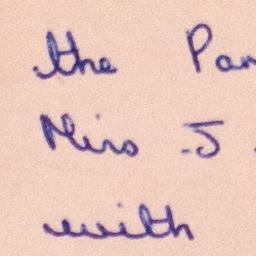 the Par
Miss J.
with